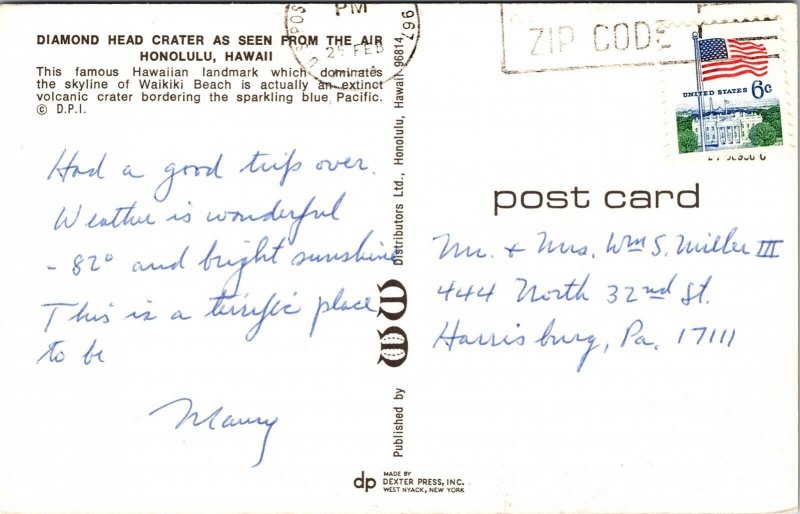 DIAMOND HEAD CRATER AS SEEN FROM THE AIR
HONOLULU, HAWAII
This famous Hawaiian landmark which dominates
the skyline of Waikiki Beach is actually an extinct
volcanic crater bordering the sparkling blue Pacific.
© D.P.I.
Had a good trip over.
Weather is wonderful
- 82° and bright sunshine
This is a terrific place
to be
Maury
PM
25 FEB
ZIP CODE
UNITED STATES 6c
post card
Mr. & Mrs. Wm S. Miller III
444 North 32nd St.
Harrisburg, Pa. 17111
Published by
Distributors Ltd., Honolulu, Hawaii 96814
dp
MADE BY
DEXTER PRESS, INC.
WEST NYACK, NEW YORK